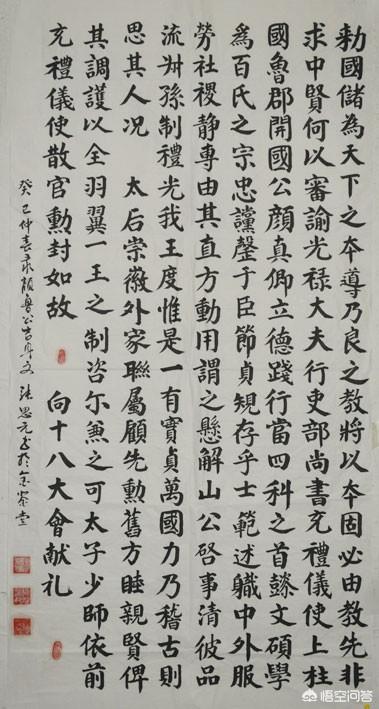 勅國儲為天下之本導乃良之教將以本固必由教先非
求中賢何以審諭光禄大夫行吏部尚書充禮儀使上柱
國魯郡開國公顔真卿立德踐行當四科之首懿文碩學
爲百氏之宗忠讜罄于臣節貞規存乎士範述職中外服
勞社稷静專由其直方動用謂之懸解山公啓事清彼品
流叔孫制禮光我王度惟是一有實貞萬國力乃稽古則
思其人况 太后崇徽外家聯屬顧先勳舊方睦親賢俾
其調護以全羽翼一王之制咨尔兼之可太子少師依前
充禮儀使散官勳封如故 向十八大會献礼
癸巳仲春录顔魯公告身文 張思元書於堂
悟空问答